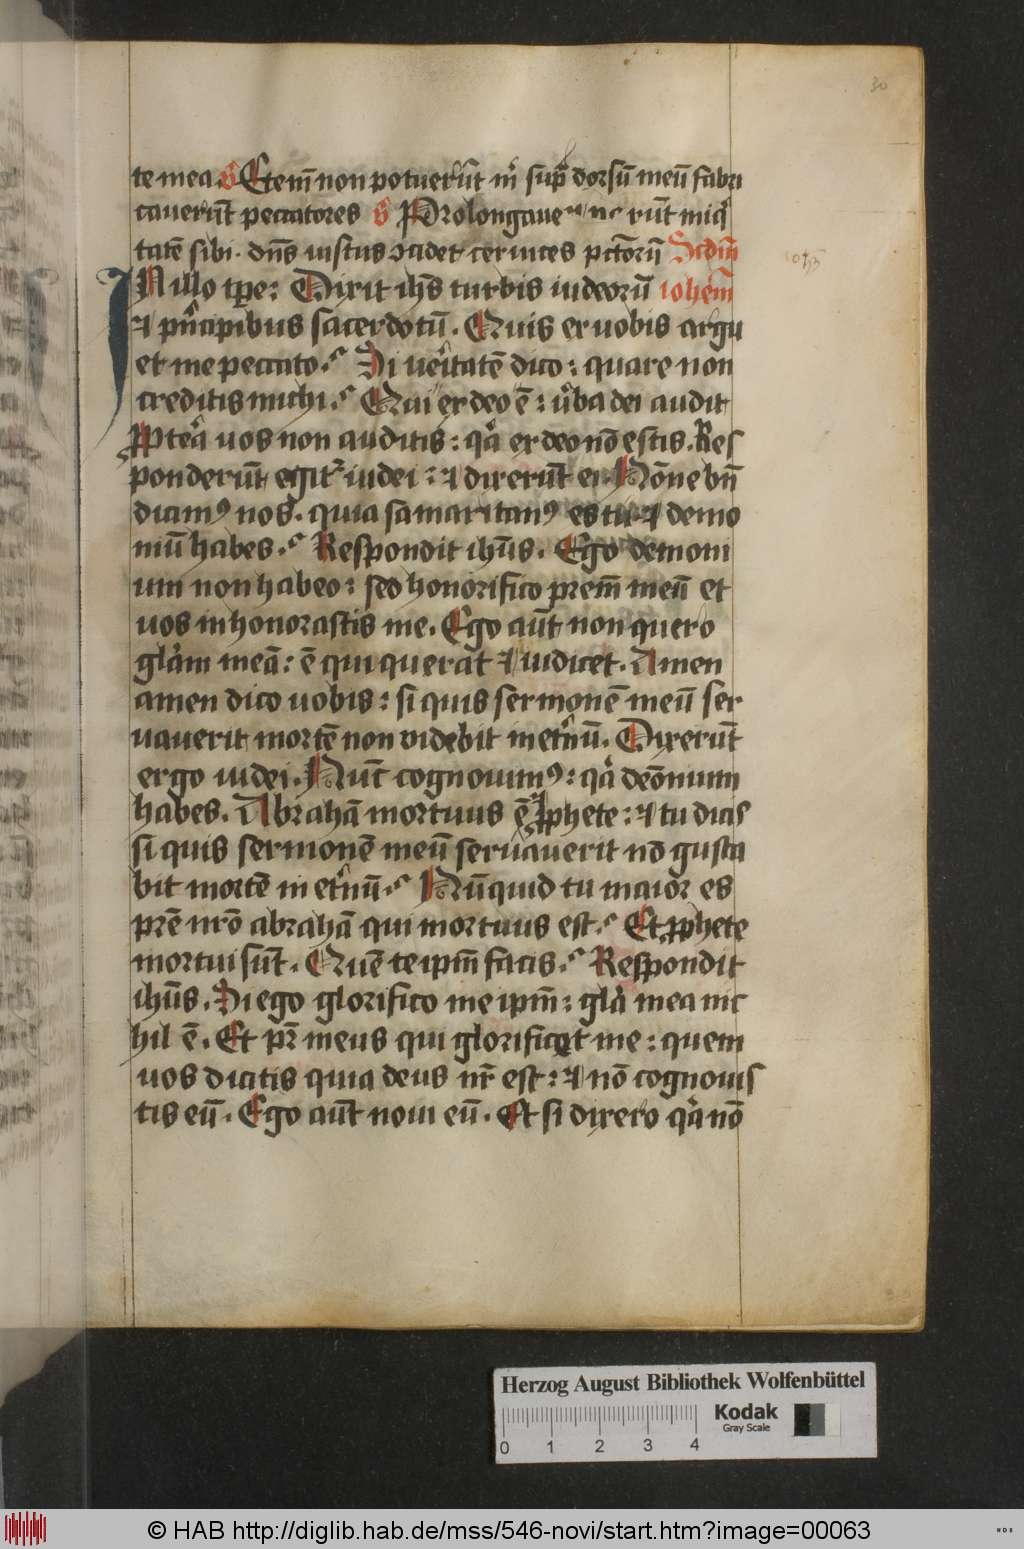 30
te mea. v̕ Eteni̅ non potueru̅t m̕ sup̅ dorsu̅ meu̅ fabri
caueru̅t peccatores v̕ Prolongaue ru̅t iniq̕
tate̅ sibi. dn̅s iustus ɔcidet ceruices pctoru̅ Scdm̅
IN illo tp̅e: Dixit ih̅s turbis iudeoru̅ iohem̅
⁊ pn̕cipibus sacerdotu̅. Quis ex uobis argu
et me peccato. Si ue̕itate̅ dico: quare non
creditis michi. Qui ex deo e̅: u̕ba dei audit
Ppte̕a uos non auditis: qa̕ ex deo no̅ estis. Res
ponderu̅t egit᷑ iudei: ⁊ dixeru̅t ei. No̅ne bn̅
dicimꝰ nos. quia samaritanꝰ es tu ⁊ demo
niu̅ habes. Respondit ih̅us. Ego demoni
um non habeo: sed honorifico prem̅ meu̅ et
uos inhonorastis me. Ego au̅t non quero
gla̕m mea̅: e̅ qui querat ⁊ iudicet. Amen
amen dico uobis: si quis sermone̅ meu̅ ser
uauerit morte̅ non videbit in et̕nu̅. Dixeru̅t
ergo iudei. Nu̅c cognouimꝰ: qa̕ deo̅nium
habes. Abraha̅ mortuus e̅ ꝓphete: ⁊ tu dicis
si quis sermone̅ meu̅ seruauerit no̅ gusta
bit morte̅ in et̕nu̅. Nu̅quid tu maior es
pre̅ nr̅o abraha̅ qui mortuus est. Et ꝓphete
mortui su̅t. Que̅ te ipm̅ facis. Respondit
ih̅us. Si ego glorifico me ipm̅: gla̕ mea nic
hil e̅. Et pr̅ meus qui glorificat me: quem
uos dicitis quia deus nr̅ est: ⁊ no̅ cognouis
tis eu̅. Ego au̅t noui eu̅. Et si dixero qa̕ no̅
Herzog August Bibliothek Wolfenbüttel
Kodak
Gray Scale
0 1 2 3 4
© HAB http://diglib.hab.de/mss/546-novi/start.htm?image=00063